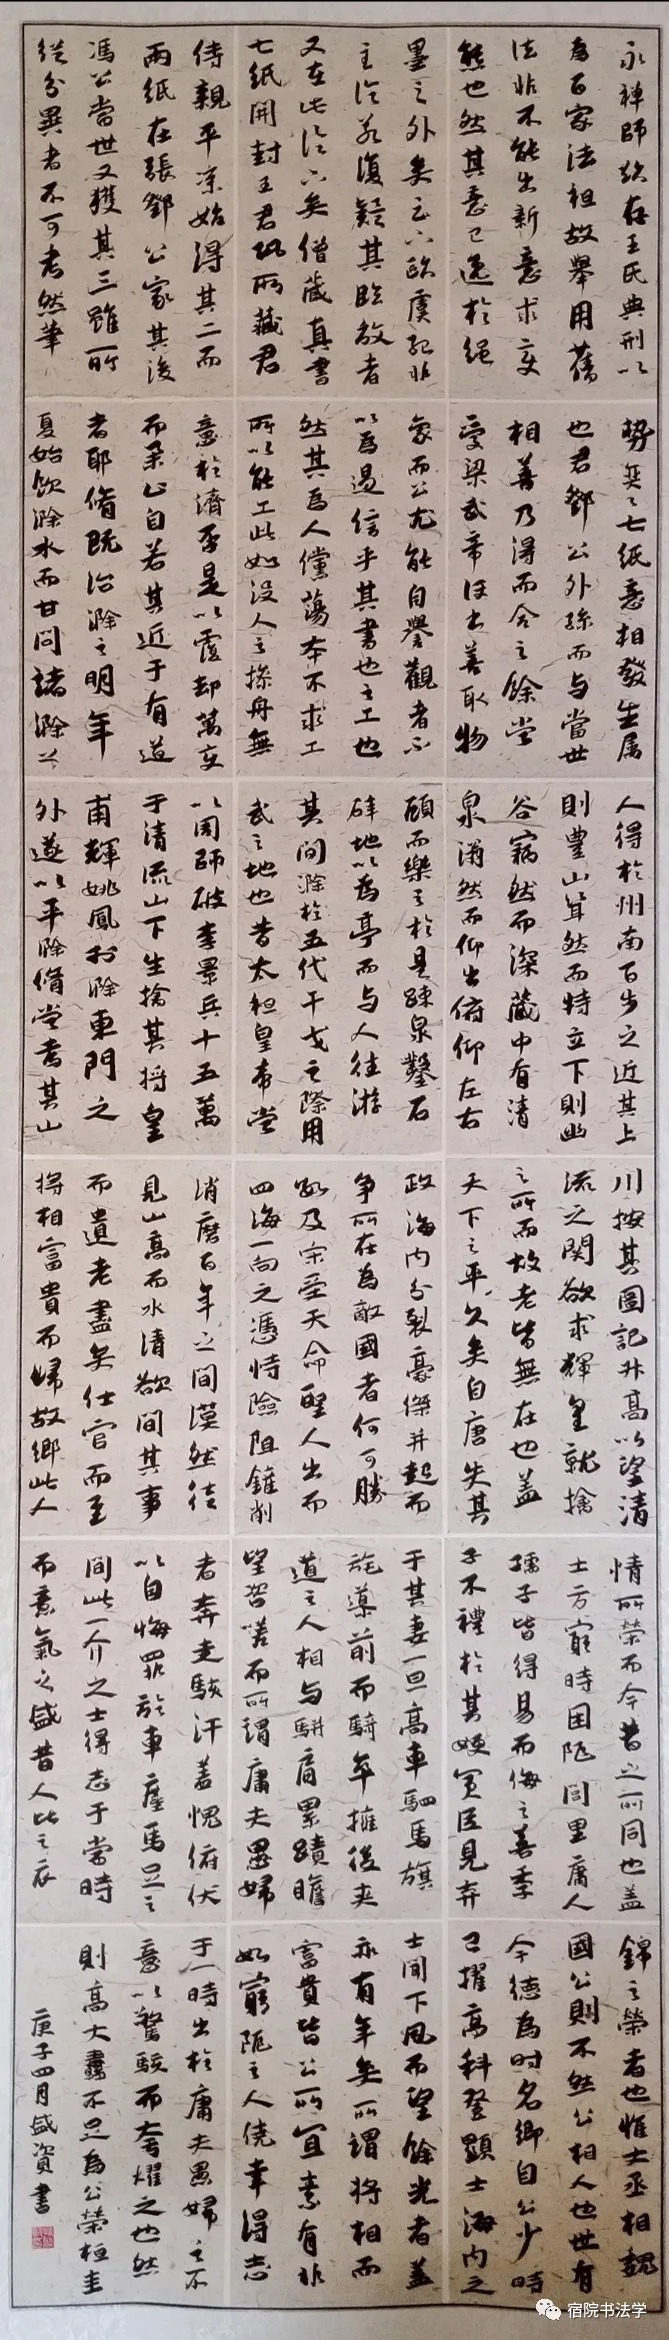 永禅師欲存王氏典刑以
為百家法祖故舉用舊
法非不能出新意求变
態也然其意已逸於繩
墨之外矣云下歐虞殆非
至論若復疑其臨放者
又在此論下矣僧藏真書
七紙開封王君鞏所藏君
侍親平凉始得其二而
兩紙在張鄧公家其後
馮公當世又獲其三雖所
從分異者不可考然筆
勢奕奕七紙意相發生属
也君鄧公外孫而与當世
相善乃得而合之餘嘗
愛梁武帝評書善取物
象而公尤能自譽觀者不
以為過信乎其書也之工也
然其為人儻蕩本不求工
所以能工此如没人之操舟無
意於濟否是以覆却萬变
而舉止自若其近于有道
者耶脩既治滁之明年
夏始飲滁水而甘問諸滁
人得於州南百步之近其上
則豊山耸然而特立下則幽
谷窈然而深藏中有清
泉滃然而仰出俯仰左右
顧而樂之於是疎泉鑿石
辟地以為亭而与人往游
其间滁於五代干戈之際用
武之地也昔太祖皇帝嘗
以周師破李景兵十五萬
于清流山下生擒其将皇
甫輝姚鳳於滁東門之
外遂以平滁脩嘗考其山
川按其圖記升高以望清
流之関欲求輝皇就擒
之所而故老皆無在也盖
天下之平久矣自唐失其
政海内分裂豪傑并起而
争所在為敵國者何可勝
数及宋受天命聖人出而
四海一向之憑恃險阻鏟削
消磨百年之间漠然徒
見山高而水清欲问其事
而遺老盡矣仕宦而至
将相富貴而归故鄉此人
情所榮而今昔之所同也盖
士方窮時困阨闾里庸人
孺子皆得易而侮之若季
子不禮於其嫂買臣見弃
于其妻一旦高車駟馬旗
旄導前而騎卒擁後夹
道之人相与駢肩累蹟瞻
望咨嗟而所謂庸夫愚婦
者奔走駭汗羞愧俯伏
以自悔罪於車塵馬足之
间此一介之士得志于當時
而意氣之盛昔人比之衣
錦之榮者也惟士丞相魏
國公則不然公相人也世有
令德為时名卿自公少時
已擢高科登顕士海内之
士闻下風而望餘光者盖
亦有年矣所謂将相而
富貴皆公所宜素有非
如窮阨之人僥幸得志
于一時出於庸夫愚婦之不
意以驚駭而夸耀之也然
則高大纛不足為公榮桓圭
庚子四月盛資書
宿院书法学